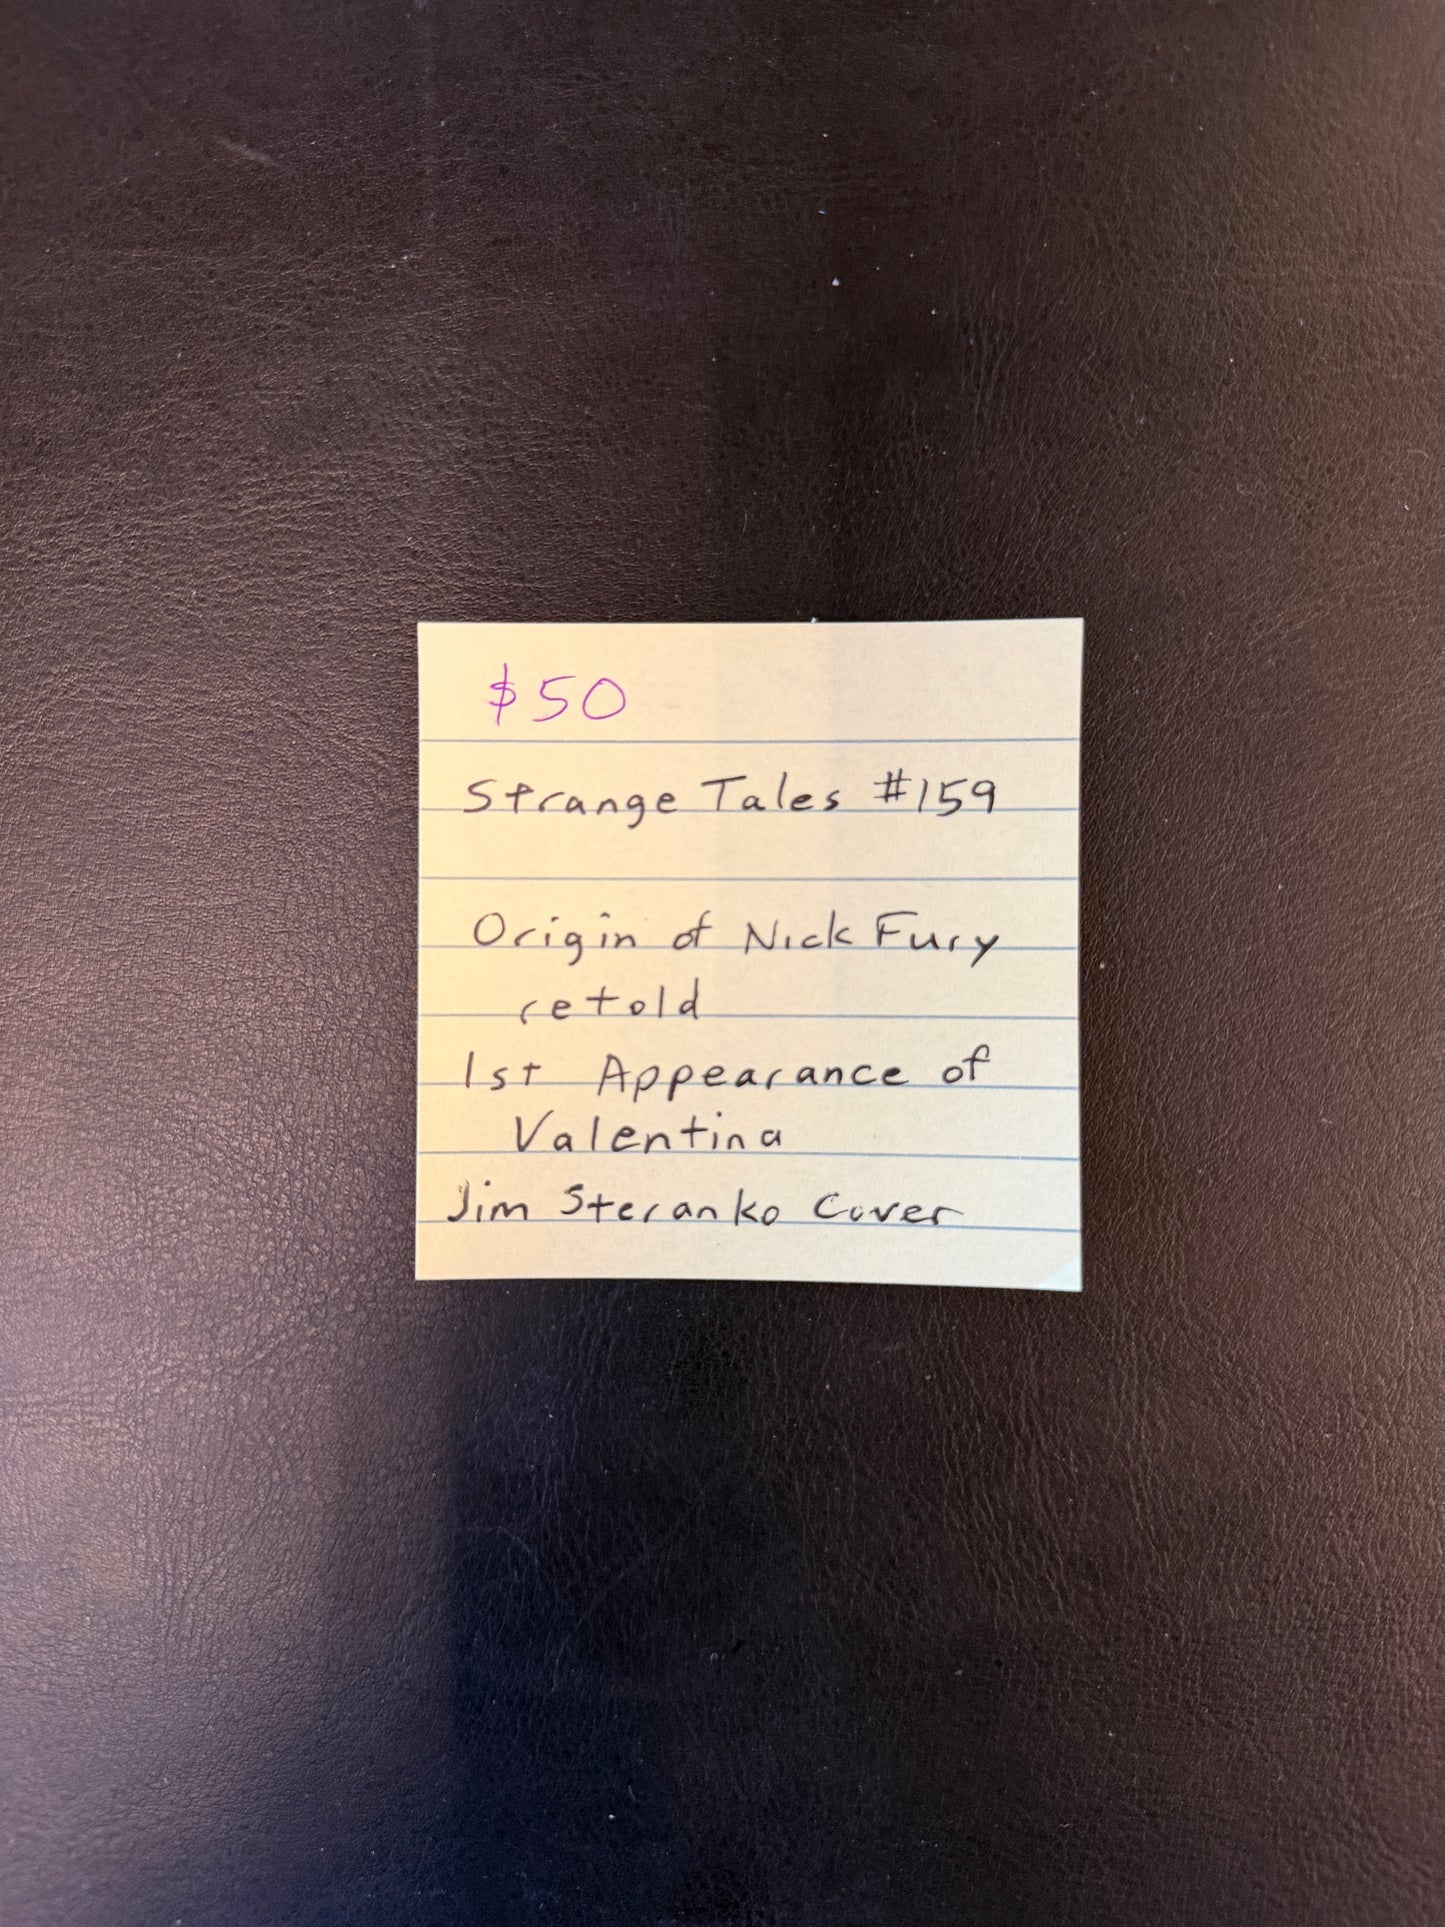 $50
Strange Tales #159
Origin of Nick Fury
retold
1st Appearance of
Valentina
Jim Steranko Cover